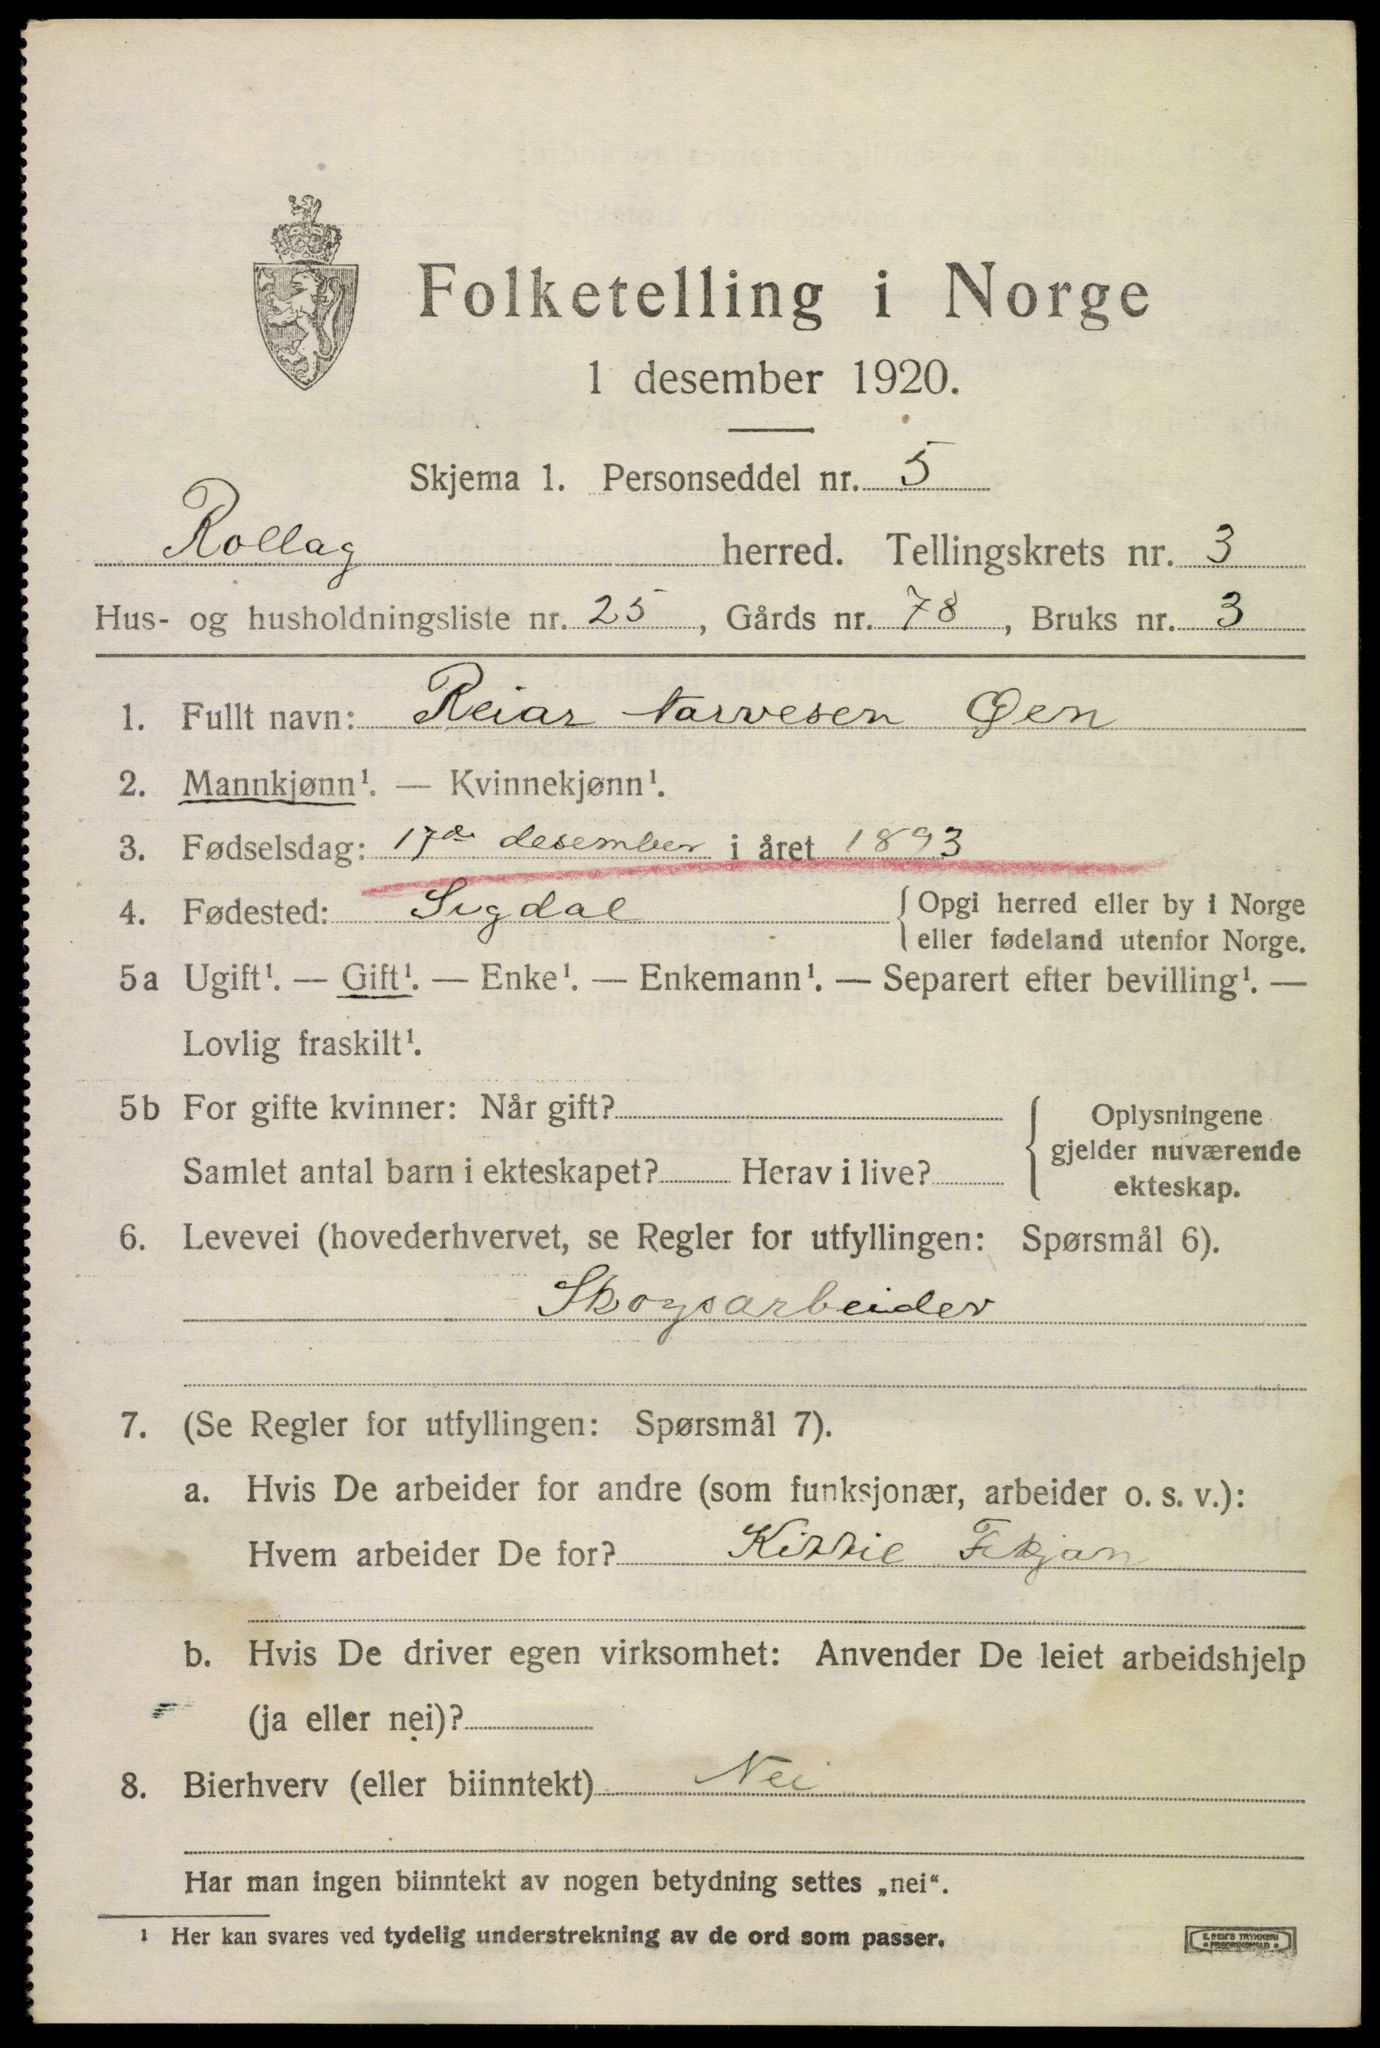 Folketelling i Norge
1 desember 1920.
Skjema 1. Personseddel nr. 5
Rollag herred. Tellingskrets nr. 3
Hus- og husholdningsliste nr. 25, Gårds nr. 78, Bruks nr. 3
1. Fullt navn: Reiar Narvesen Øen
2. Mannkjønn¹. — Kvinnekjønn¹.
3. Fødselsdag: 17de desember i året 1893
4. Fødested: Sigdal { Opgi herred eller by i Norge
eller fødeland utenfor Norge.
5a Ugift¹. — Gift¹. — Enke¹. — Enkemann¹. — Separert efter bevilling¹. —
Lovlig fraskilt¹.
5b For gifte kvinner: Når gift?
Samlet antal barn i ekteskapet? Herav i live?
{ Oplysningene
gjelder nuværende
ekteskap.
6. Levevei (hovederhvervet, se Regler for utfyllingen: Spørsmål 6).
Skogsarbeider
7. (Se Regler for utfyllingen: Spørsmål 7).
a. Hvis De arbeider for andre (som funksjonær, arbeider o. s. v.):
Hvem arbeider De for? Kittil Fekjan
b. Hvis De driver egen virksomhet: Anvender De leiet arbeidshjelp
(ja eller nei)?
8. Bierhverv (eller biinntekt) Nei
Har man ingen biinntekt av nogen betydning settes „nei“.
¹ Her kan svares ved tydelig understrekning av de ord som passer.
E. SEM'S TRYKKERI
FREDRIKSHALD